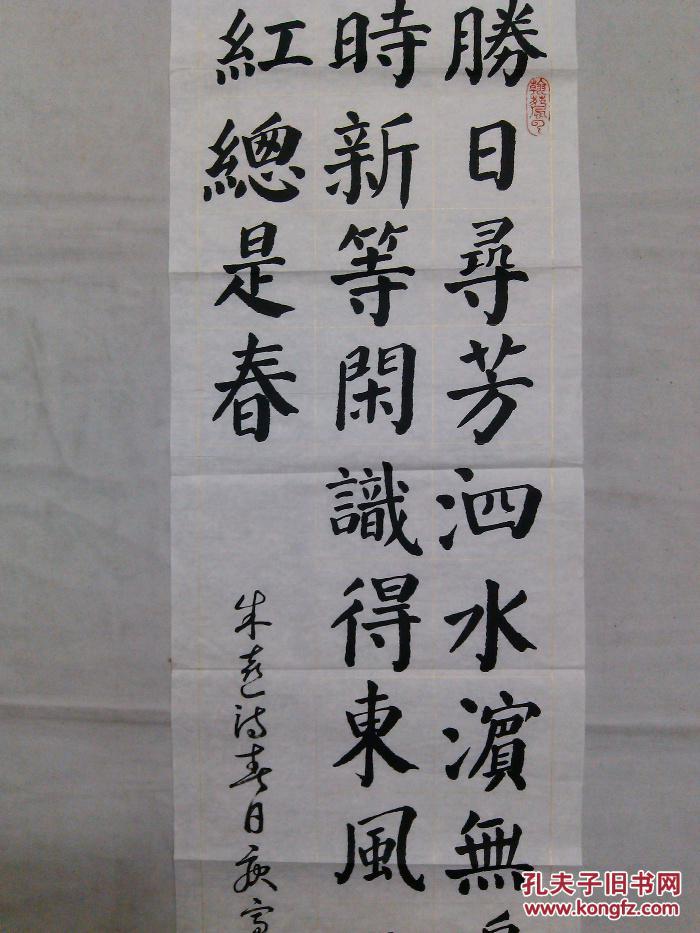 勝日尋芳泗水濱無
時新等閑識得東風
紅總是春
朱熹詩春日
孔夫子旧书网
www.kongfz.com